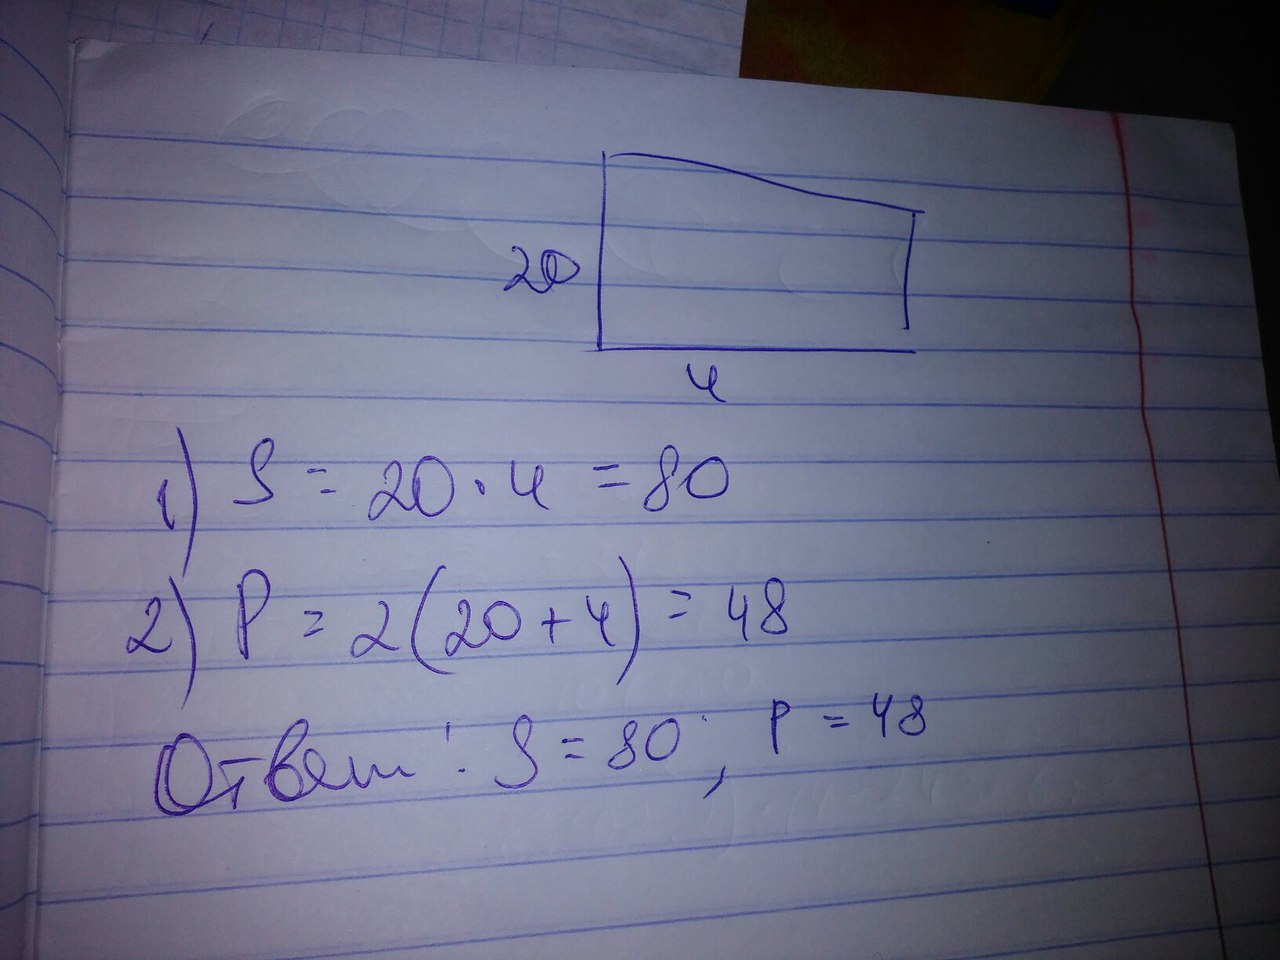 20
4
1) S = 20 · 4 = 80
2) P = 2(20+4) = 48
Ответ: S = 80; P = 48